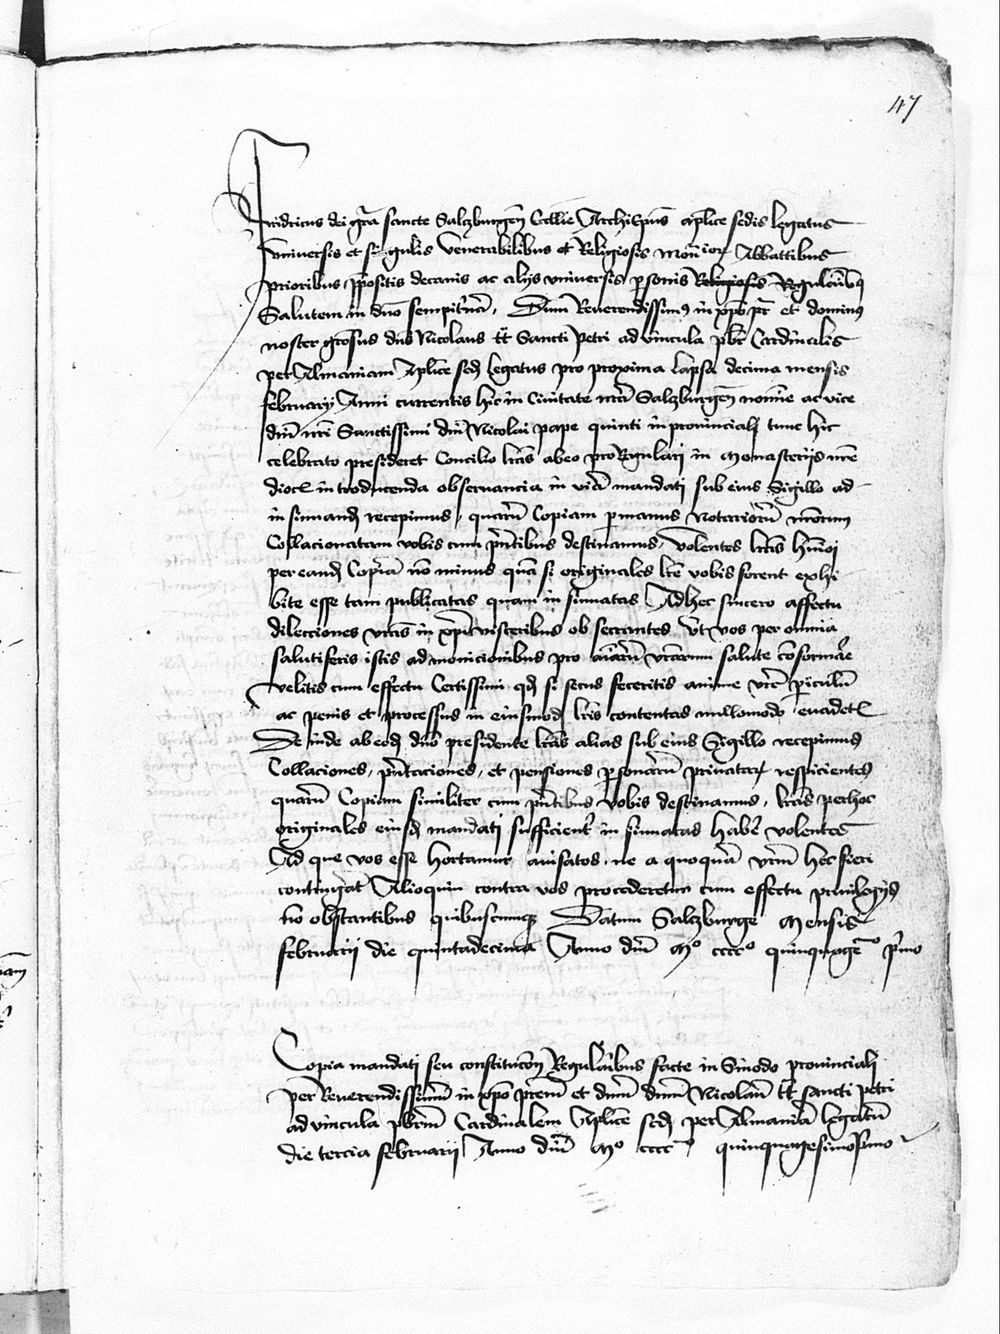 47
Fridricus dei gra sancte Salzburgen Ecclie Archiepus aplice sedis legatus
Universis et singulis venerabilibus et Religiosis Monrior Abbattibus
prioribus ppositis decanis ac alys universis psonis Religiosis Regularibq
Salutem in dno sempiterna, Dum Reverendissimus in xpo pr et dominus
noster grosus dns Nicolaus tt Sancti Petri ad vincula pbr Cardinalis
per Almaniam Aplice sed legatus pro proxima lapsa decima mensis
februarij Anni currentis hic in Civitate nra Salzburgen nomine ac vice
dni nri Sanctissimi dni Nicolai pape quinti in provinciali tunc hic
celebrato presideret Concilio lras abeo pro Regulari in Monasterijs nre
dioc introducenda observancia in via mandati sub eius Sigillo ad
insinuand recepimus, quarum Copiam per manus Notariorum nrorum
Collacionatam vobis cum pntibus destinamus, Volentes lras hmoi
per eand Copia non minus qua si originales lre vobis forent exhi
bite esse tam publicatas quam insinuatas Adhec sincero affectu
dilecciones vras in xpi visceribus obsecrantes Ut vos per omnia
salutiferis istis admonicionibus pro aiarum vrarum salute conformare
velitis cum effectu Certissimi qd si secus feceritis anime vre periculum
ac penis et processus in eiusmod lris contentas nullomodo evadet
Deinde ab eod dno presidente lras alias sub eius Sigillo recepimus
Collaciones, pntaciones, et pensiones psonarum privatar respicientes
quarum Copiam similiter cum pntibus vobis destinamus, lras per hoc
originales eiusd mandati sufficienter insinuatas haberi volentes
Ad que vos esse hortamur avisatos, ne a quoqua vrm hec fieri
contingat Alioquin contra vos procederetur cum effectu privilegijs
no obstantibus quibuscumq Datum Salzburge Mensis
februarij die quintadecima Anno dni Mo cccco quinquageo primo
Copia mandati seu constitucon Regularibus facte in Sinodo provinciali
per Reverendissimum in xpo prem et dnm dnm Nicolaum tt sancti petri
ad vincula pbrm Cardinalem Aplice sed per Almania legatum
die tercia februarij Anno dni Mo cccco quinquagesimo primo